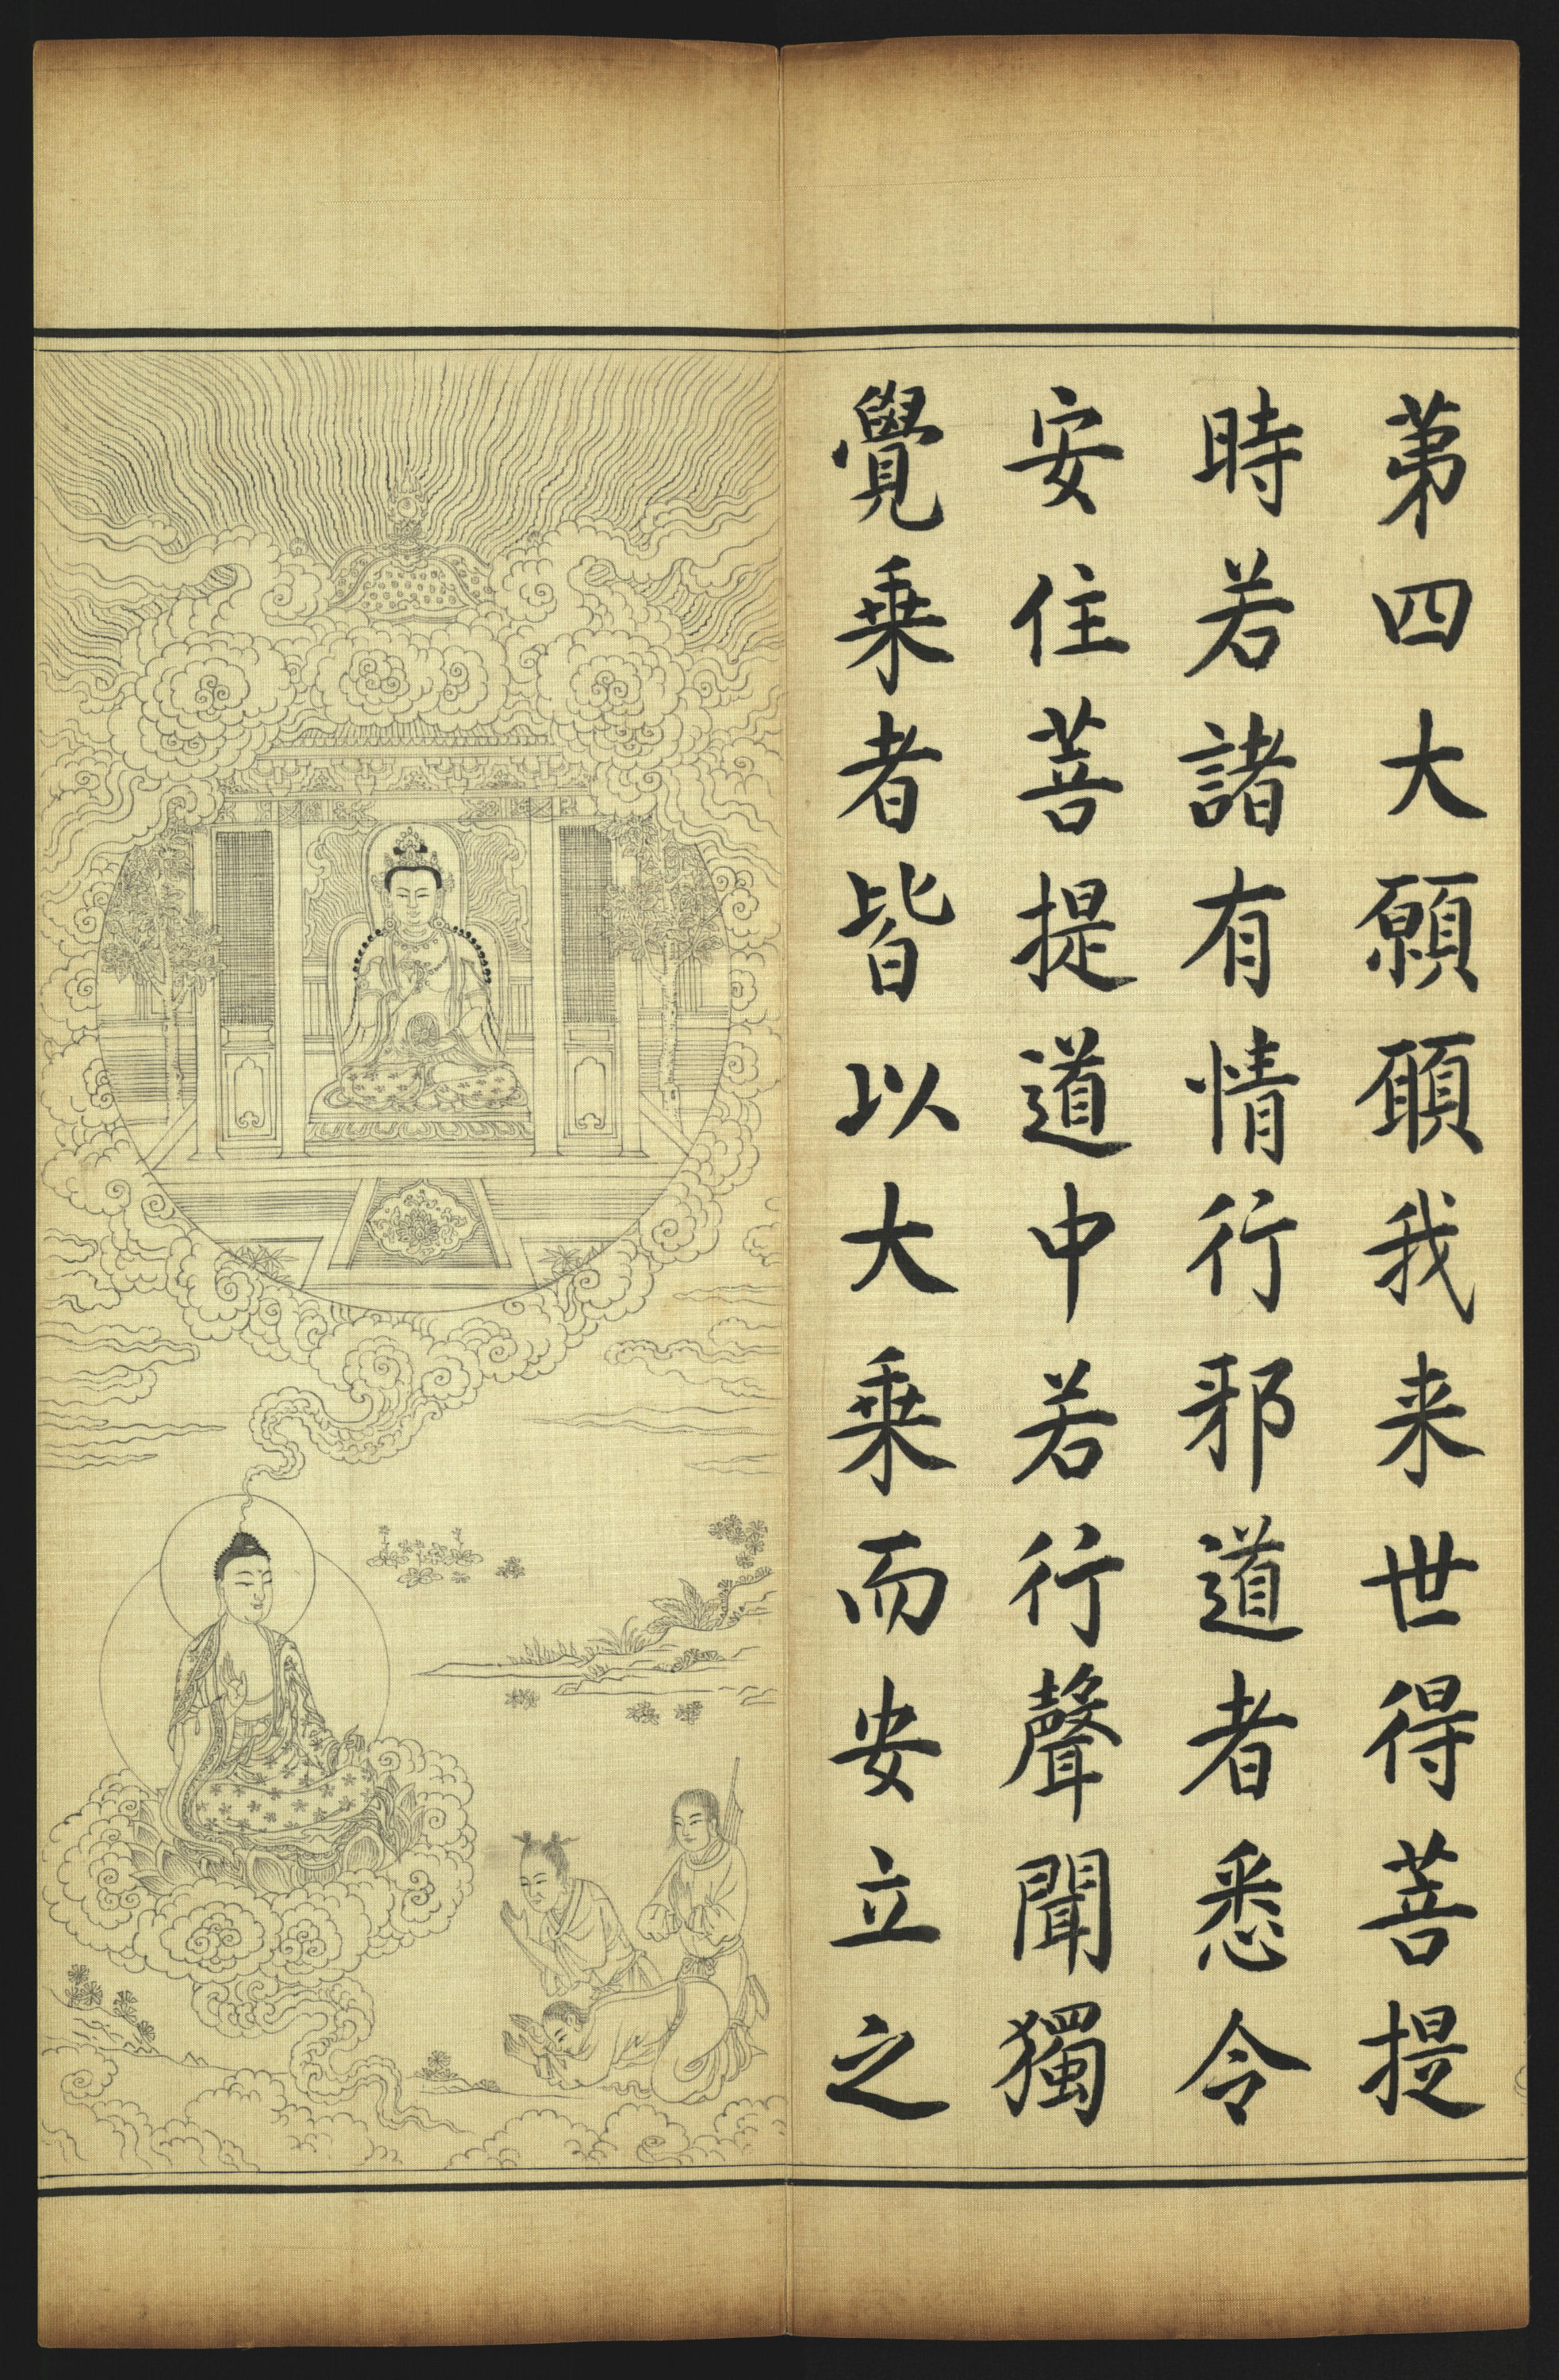 第四大願願我来世得菩提
時若諸有情行邪道者悉令
安住菩提道中若行聲聞獨
覺乗者皆以大乗而安立之